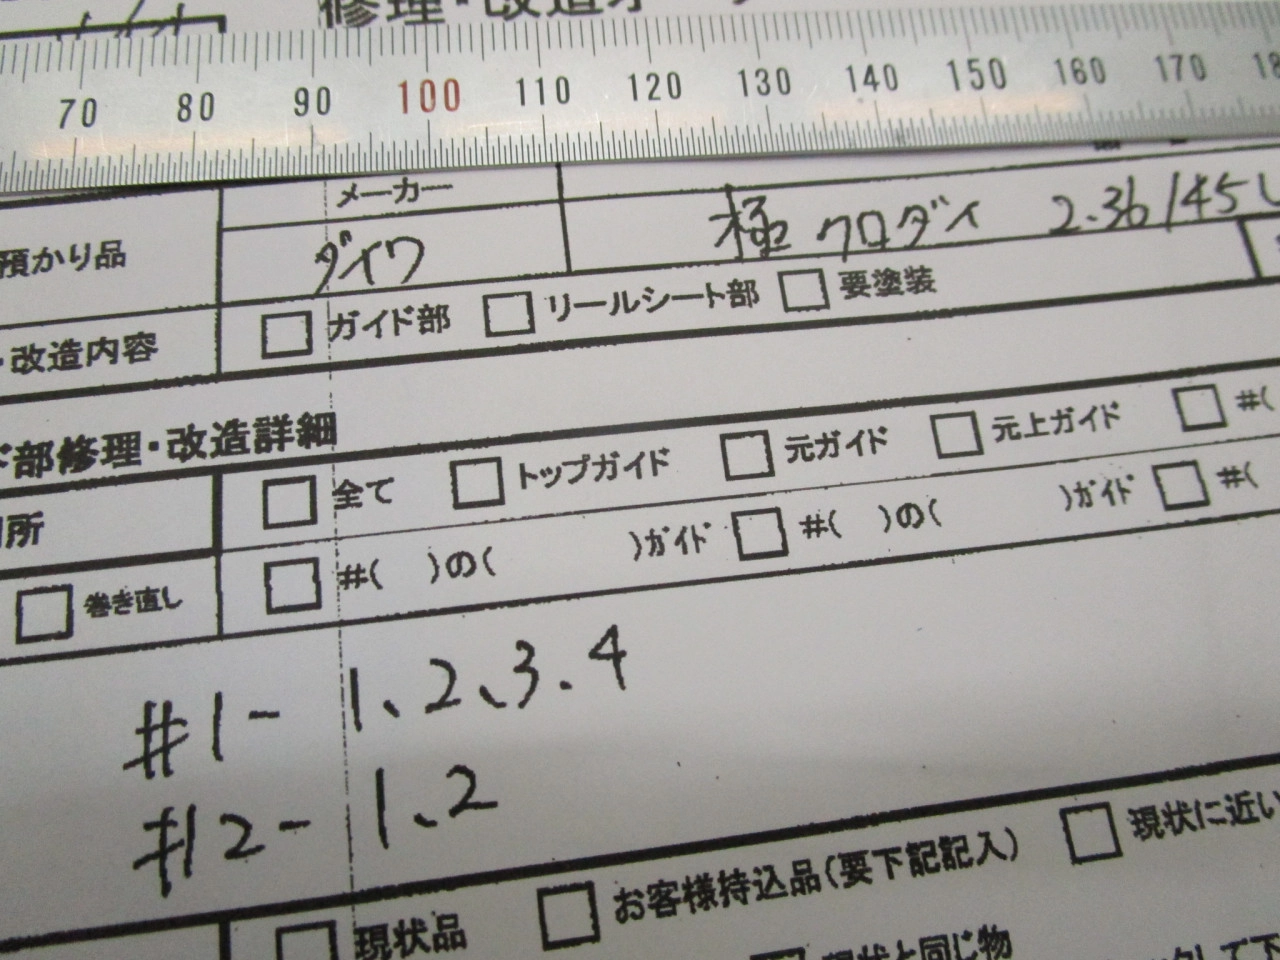 修理・改造オーダ
70 80 90 100 110 120 130 140 150 160 170 18
メーカー
預かり品 ダイワ 極 クロダイ 2.36/45
・改造内容 □ ガイド部 □ リールシート部 □ 要塗装
部修理・改造詳細
所 □ 全て □ トップガイド □ 元ガイド □ 元上ガイド □ #(
□ 巻き直し □ #( )の( )ガイド □ #( )の( )ガイド □ #(
#1- 1、2、3.4
#2- 1、2
□ 現状品 □ お客様持込品(要下記記入) □ 現状に近い
現状と同じ物